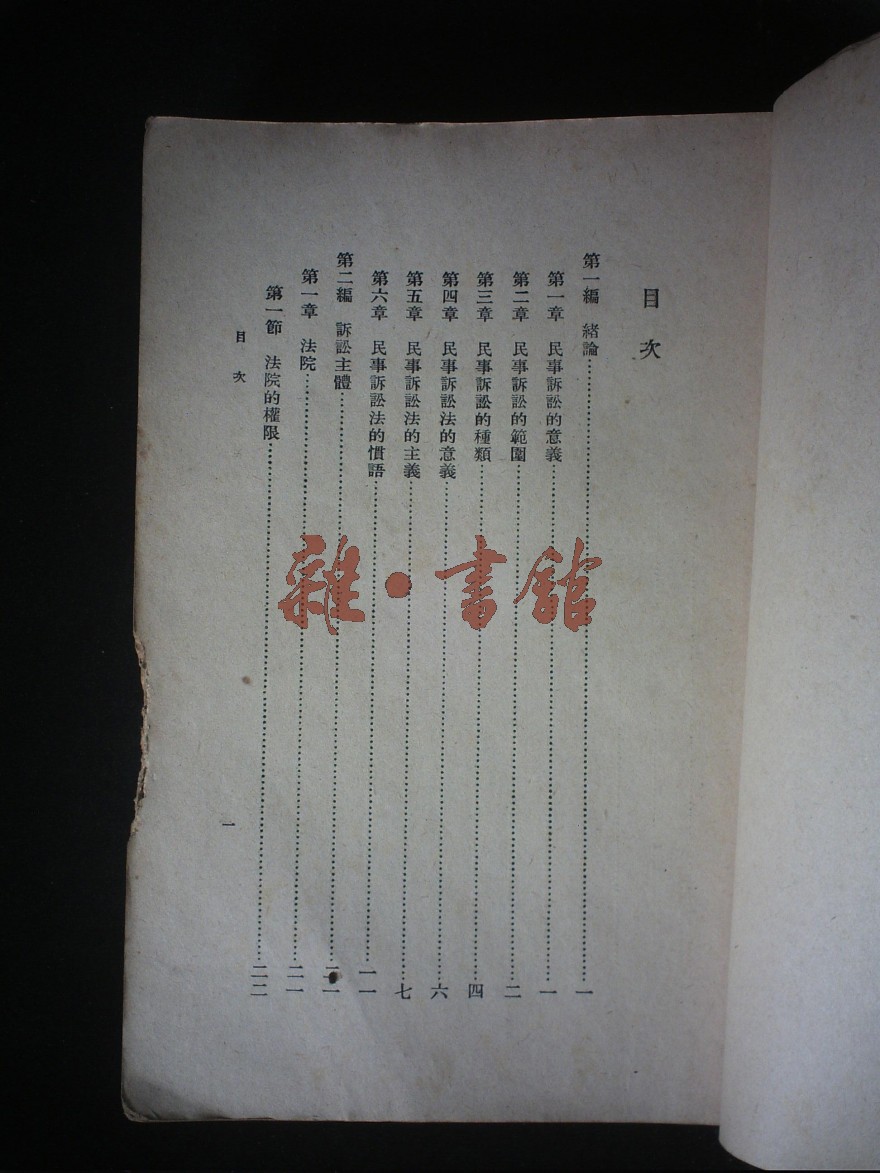 目次
第一編 緒論……一
第一章 民事訴訟的意義……一
第二章 民事訴訟的範圍……二
第三章 民事訴訟的種類……四
第四章 民事訴訟法的意義……六
第五章 民事訴訟法的主義……七
第六章 民事訴訟法的慣語……一一
第二編 訴訟主體……二一
第一章 法院……二一
第一節 法院的權限……二二
目次
一
雜·書館